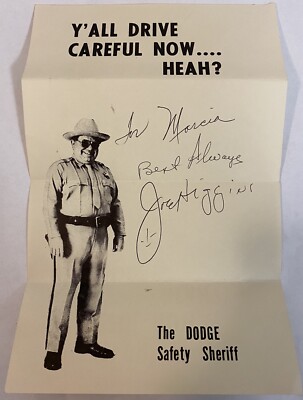 Y'ALL DRIVE
CAREFUL NOW....
HEAH?
For Marcia
Best Always
Joe Higgins
The DODGE
Safety Sheriff